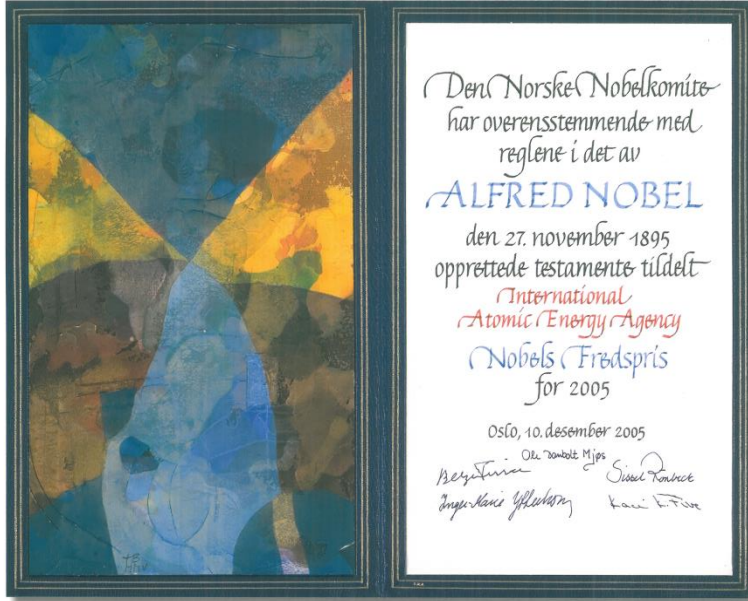 Den Norske Nobelkomite
har overensstemmende med
reglene i det av
ALFRED NOBEL
den 27. november 1895
opprettede testamente tildelt
International
Atomic Energy Agency
Nobels Fredspris
for 2005
Oslo, 10. desember 2005
Ole Danbolt Mjøs
Berge Furre
Sissel Rønbeck
Inger-Marie Ytterhorn
Kaci K. Five